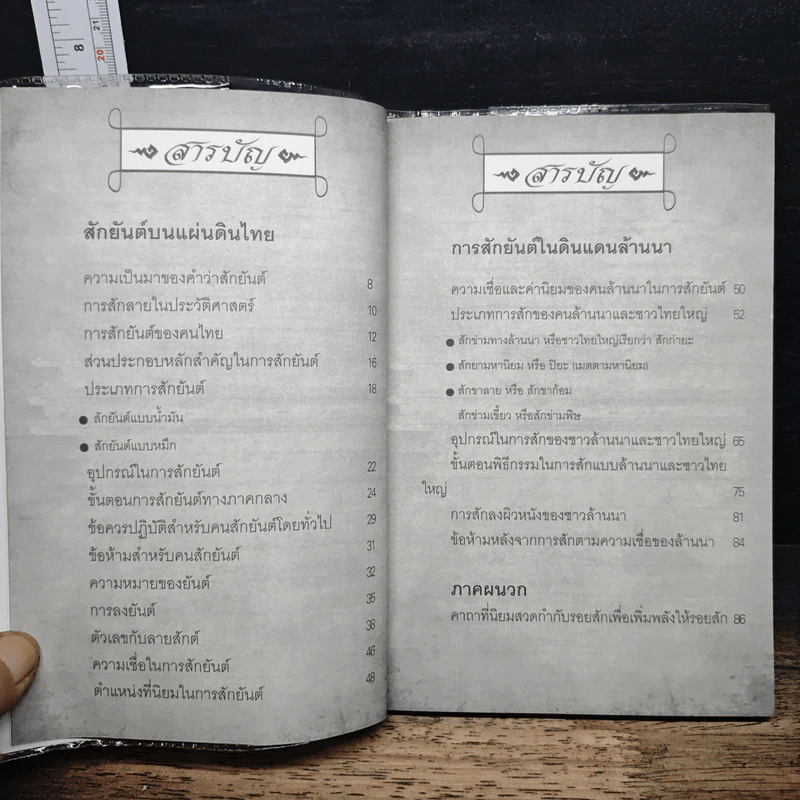 8
21
20
สารบัญ
สักยันต์บนแผ่นดินไทย
ความเป็นมาของคำว่าสักยันต์ 8
การสักลายในประวัติศาสตร์ 10
การสักยันต์ของคนไทย 12
ส่วนประกอบหลักสำคัญในการสักยันต์ 16
ประเภทการสักยันต์ 18
● สักยันต์แบบน้ำมัน
● สักยันต์แบบหมึก
อุปกรณ์ในการสักยันต์ 22
ขั้นตอนการสักยันต์ทางภาคกลาง 24
ข้อควรปฏิบัติสำหรับคนสักยันต์โดยทั่วไป 29
ข้อห้ามสำหรับคนสักยันต์ 31
ความหมายของยันต์ 32
การลงยันต์ 35
ตัวเลขกับลายสักต์ 38
ความเชื่อในการสักยันต์ 46
ตำแหน่งที่นิยมในการสักยันต์ 48
สารบัญ
การสักยันต์ในดินแดนล้านนา
ความเชื่อและค่านิยมของคนล้านนาในการสักยันต์ 50
ประเภทการสักของคนล้านนาและชาวไทยใหญ่ 52
● สักข่ามทางล้านนา หรือชาวไทยใหญ่เรียกว่า สักก๋ายะ
● สักยามหานิยม หรือ ปิยะ (เมตตามหานิยม)
● สักขาลาย หรือ สักขาก้อม
สักข่ามเขี้ยว หรือสักข่ามพิษ
อุปกรณ์ในการสักของชาวล้านนาและชาวไทยใหญ่ 65
ขั้นตอนพิธีกรรมในการสักแบบล้านนาและชาวไทย
ใหญ่ 75
การสักลงผิวหนังของชาวล้านนา 81
ข้อห้ามหลังจากการสักตามความเชื่อของล้านนา 84
ภาคผนวก
คาถาที่นิยมสวดกำกับรอยสักเพื่อเพิ่มพลังให้รอยสัก 86